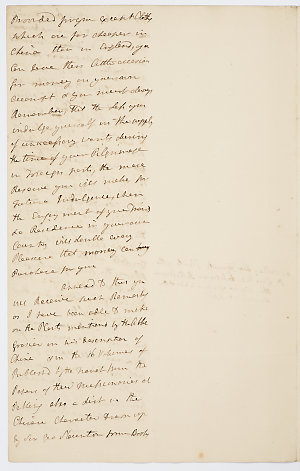 Provided for you except Cloth
which are far cheaper in
China than in England, you
Can have then little occasion
for money on your own
Account & you must always
Remember, that the less you
indulge yourself in the supply
of unnecessary wants during
the time of your Pilgrimage
in foreign parts, the more
Reserve you will make for
future Indulgence, when
the Enjoyment of your
Residence in your own
Country will double every
Pleasure that money can
Purchase for you
Annexd to this you
will Receive such Remarks
as I have been able to make
on the Plants mentiond by the Abbe
Grosier in his Description of
China & in the 16 Volumes of
Publishd by the from the
Papers of the Missionaries at
Peking also a list in the
Chinese Character drawn up
by Sir Geo Staunton from Book